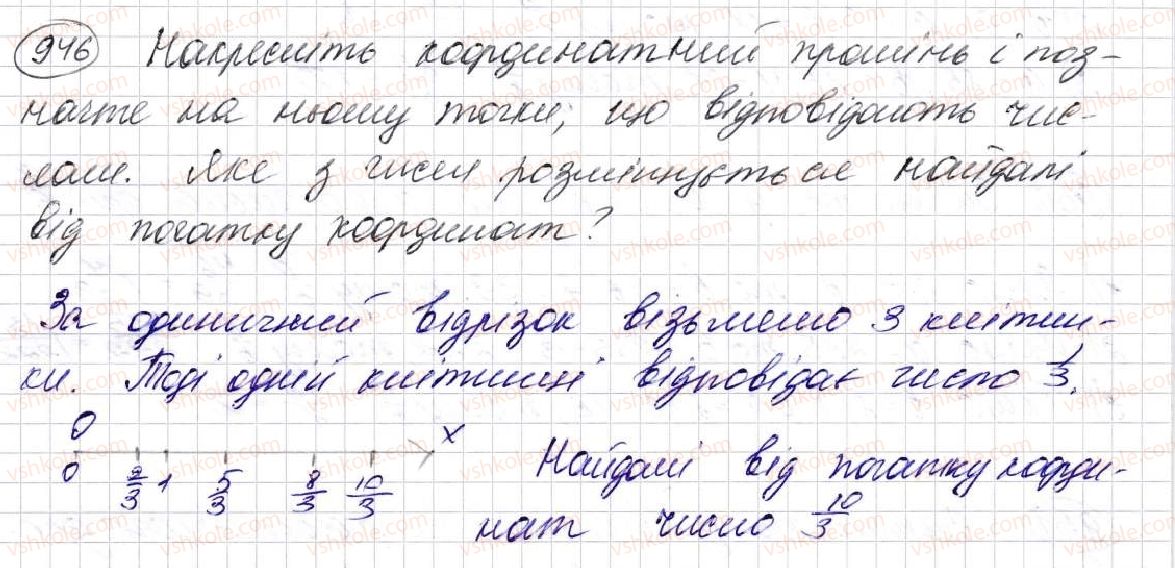 946 Накресліть координатний промінь і поз-
начте на ньому точки, що відповідають чис-
лам. Яке з чисел розміщується найдалі
від початку координат?
За одиничний відрізок візьмемо 3 клітин-
ки. Тоді одній клітинці відповідає число 1/3.
O x
0 2/3 1 5/3 8/3 10/3
Найдалі від початку коорди-
нат число 10/3
vshkole.com